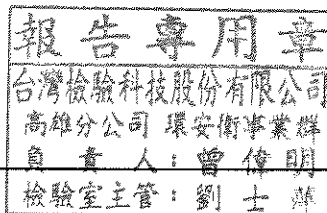 報告專用章
台灣檢驗科技股份有限公司
高雄分公司 環安衛事業群
負責人：曾偉明
檢驗室主管：劉士萍